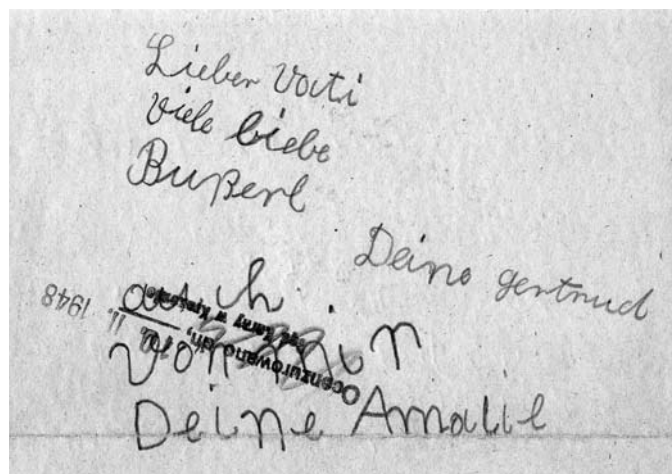 Lieber Vati
viele liebe
Bußerl
Deine gertrud
auch
von mir
Deine Amalie
Ocenzurowano dn.
w
11. 1948